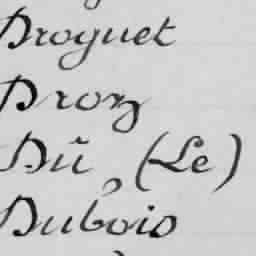 Droguet
Droz
Dû, (Le)
Dubois